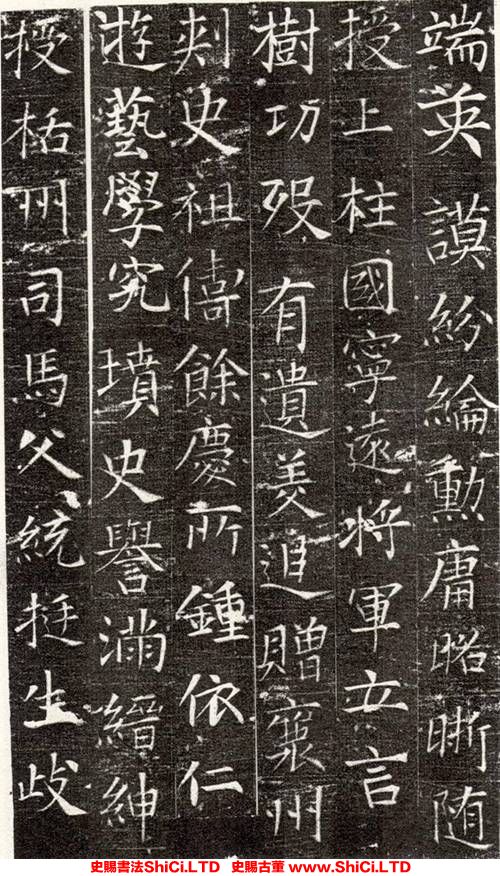 端英謨紛綸勳庸昭晣随
授上柱國寧遠将軍立言
樹功殁有遺美追贈襄州
刾史祖儔餘慶所鍾依仁
遊藝學究墳史譽滿縉紳
授栝州司馬父統挺生歧
史賜書法ShiCi.LTD 史賜古董 www.ShiCi.LTD